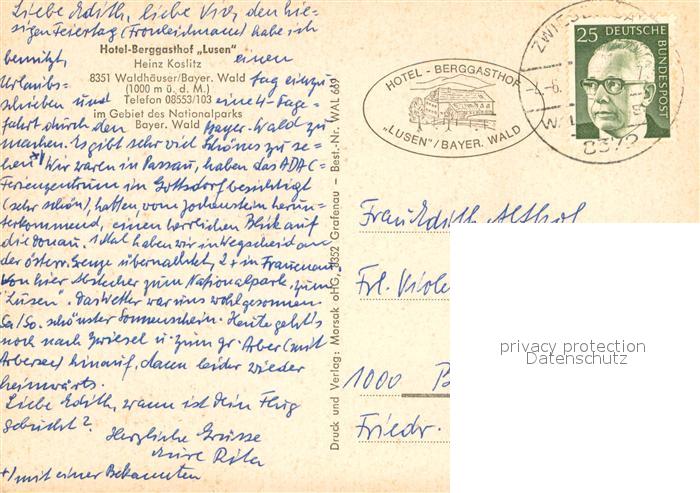 Liebe Edith, liebe Vio, den hie-
sigen Feiertag (Fronleichnam) habe ich
benützt einen
Hotel-Berggasthof „Lusen"
Heinz Koslitz
8351 Waldhäuser/Bayer. Wald
(1000 m ü. d. M.)
Telefon 08553/103
im Gebiet des Nationalparks
Bayer. Wald
Urlaubs- tag einzu-
schieben und eine 4-Tage-
fahrt durch den Bayer. Wald zu
machen. Es gibt sehr viel Schönes zu se-
hen. Wir waren in Passau, haben das ADAC-
Ferienzentrum in Gottsdorf besichtigt
(sehr schön), hatten vom Jochenstein herun-
terkommend, einen herrlichen Blick auf
die Donau. 1 Mal haben wir in Wegscheid an
der österr. Grenze übernachtet, 2 x in Frauenau,
von hier Abstecher zum Nationalpark, zum
"Lusen". Das Wetter war uns wohlgesonnen
Sa/So. schönster Sonnenschein. Heute geht's
noch nach Zwiesel u. zum gr. Arber (mit
Arbersee) hinauf, dann leider wieder
heimwärts.
Liebe Edith, wann ist Dein Flug
gebucht?
Herzliche Grüsse
Eure Rita
+) mit einer Bekannten
Druck und Verlag: Morsak oHG, 8352 Grafenau - Best.-Nr. WAL 669
HOTEL - BERGGASTHOF
„LUSEN"/BAYER. WALD
8375
25 DEUTSCHE
BUNDESPOST
Frau Edith Althof
Frl. Viole
1000 B
Friedr.
privacy protection
Datenschutz